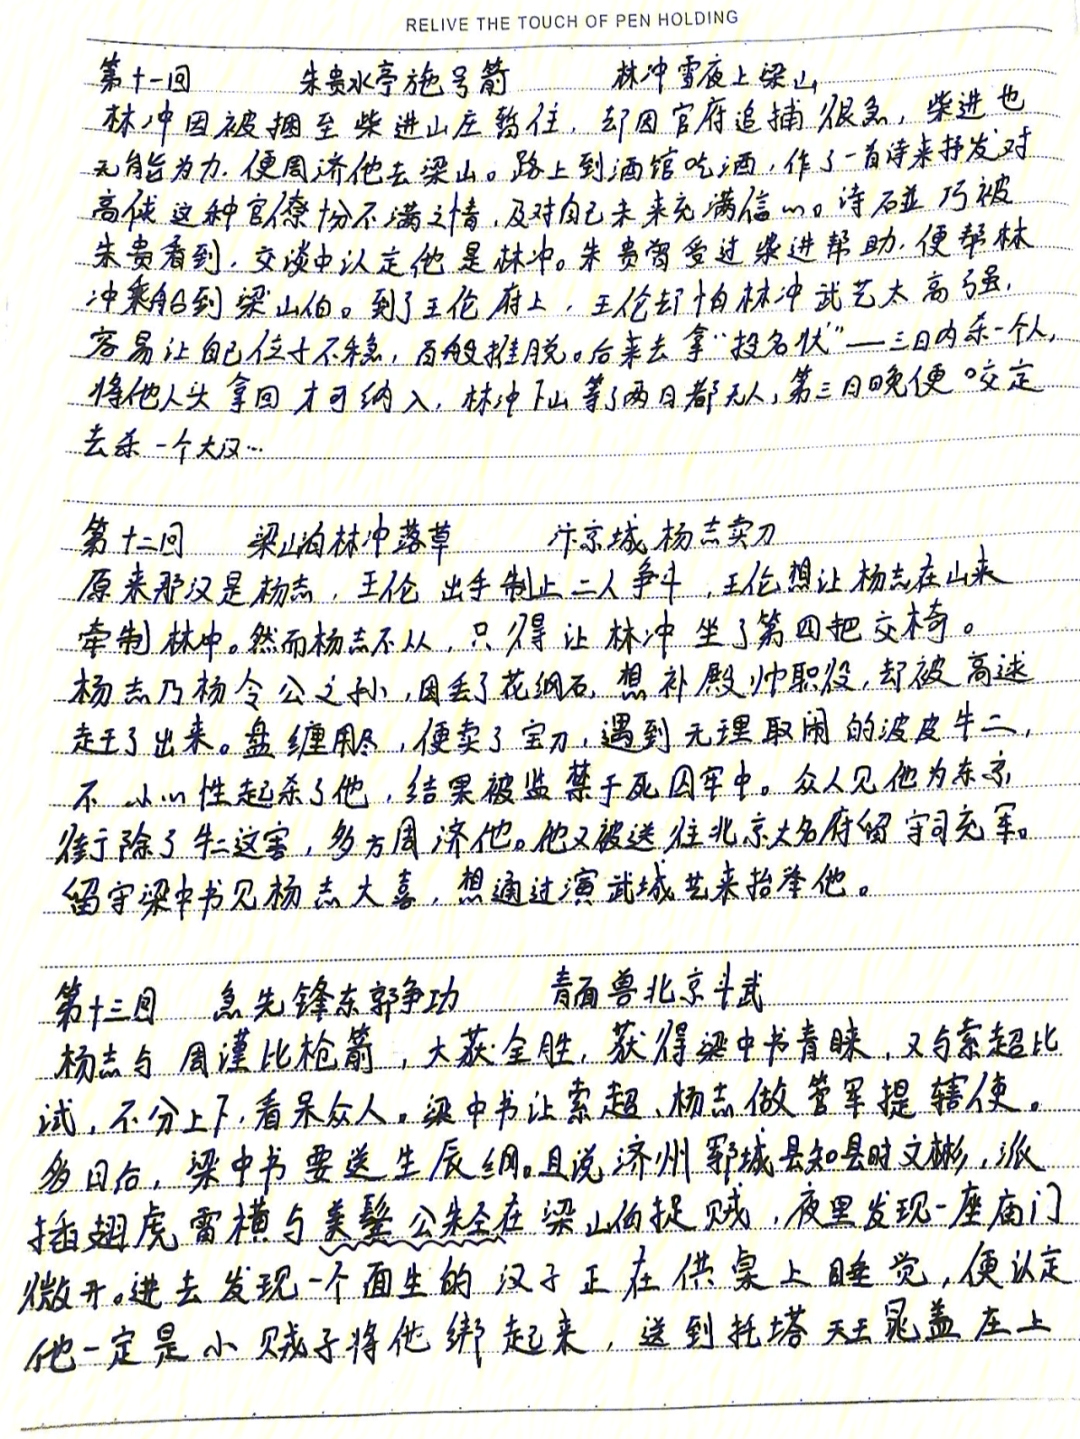 RELIVE THE TOUCH OF PEN HOLDING
第十一回 朱贵水亭施号箭 林冲雪夜上梁山
林冲因被捆至柴进山庄暂住，却因官府追捕很急，柴进也
无能为力，便周济他去梁山。路上到酒馆吃酒，作了一首诗来抒发对
高俅这种官僚十分不满之情，及对自己未来充满信心。诗碰巧被
朱贵看到，交谈中认定他是林冲。朱贵曾受过柴进帮助，便帮林
冲乘船到梁山伯。到了王伦府上，王伦却怕林冲武艺太高强，
容易让自己位子不稳，百般推脱。后来去拿“投名状”——三日内杀一个人，
将他人头拿回才可纳入，林冲下山等了两日都无人，第三日晚便咬定
去杀一个大汉…
第十二回 梁山泊林冲落草 汴京城杨志卖刀
原来那汉是杨志，王伦出手制止二人争斗，王伦想让杨志在山来
牵制林冲。然而杨志不从，只得让林冲坐了第四把交椅。
杨志乃杨令公之孙，因丢了花纲石，想补殿帅职役，却被高逑
赶了出来。盘缠用尽，便卖了宝刀，遇到无理取闹的波皮牛二，
不小心性起杀了他，结果被监禁于死囚牢中。众人见他为东京
街除了牛二这害，多方周济他。他又被送往北京大名府留守司充军。
留守梁中书见杨志大喜，想通过演武城艺来抬举他。
第十三回 急先锋东郭争功 青面兽北京斗武
杨志与周谨比枪箭，大获全胜，获得梁中书青睐，又与索超比
试，不分上下，看呆众人。梁中书让索超、杨志做管军提辖使。
多日后，梁中书要送生辰纲。且说济州郓城县知县时文彬，派
插翅虎雷横与美髯公朱仝在梁山伯捉贼，夜里发现一座庙门
微开。进去发现一个面生的汉子正在供桌上睡觉，便认定
他一定是小贼子将他绑起来，送到托塔天王晁盖庄上